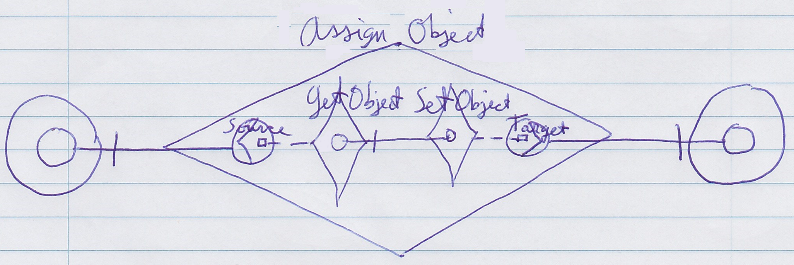 Assign Object
Get Object Set Object
Source Target